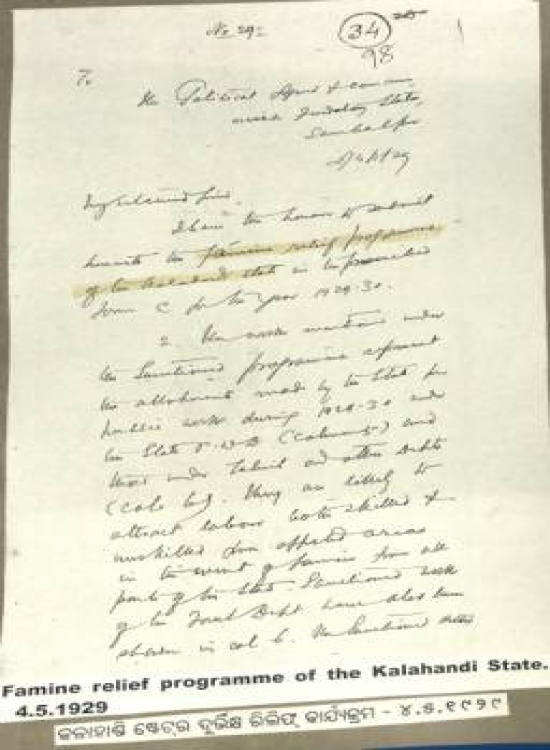 No 29.
34
98
To
The Political Agent &
Feudatory States,
Sambalpur
My dear Sir,
I have the honour to submit
herewith the famine relief programme
of the Kalahandi state in the prescribed
form C for the year 1929-30.
2. The works mentioned under
the Sanctioned programme represent
the allotment made by the State for
public work during 1929-30 under
the State P.W.D (column) and
those under Takavi and other Debts
(Cols). They are likely to
attract labour both skilled &
unskilled from affected areas
in the event of famine from all
parts of the State. Sanctioned work
of the Forest Dept have also been
shown in col 6. The Sanctioned
Famine relief programme of the Kalahandi State.
4.5.1929
କଳାହାଣ୍ଡି ଷ୍ଟେଟ୍‌ର ଦୁର୍ଭିକ୍ଷ ରିଲିଫ୍ କାର୍ଯ୍ୟକ୍ରମ - ୪.୫.୧୯୨୯